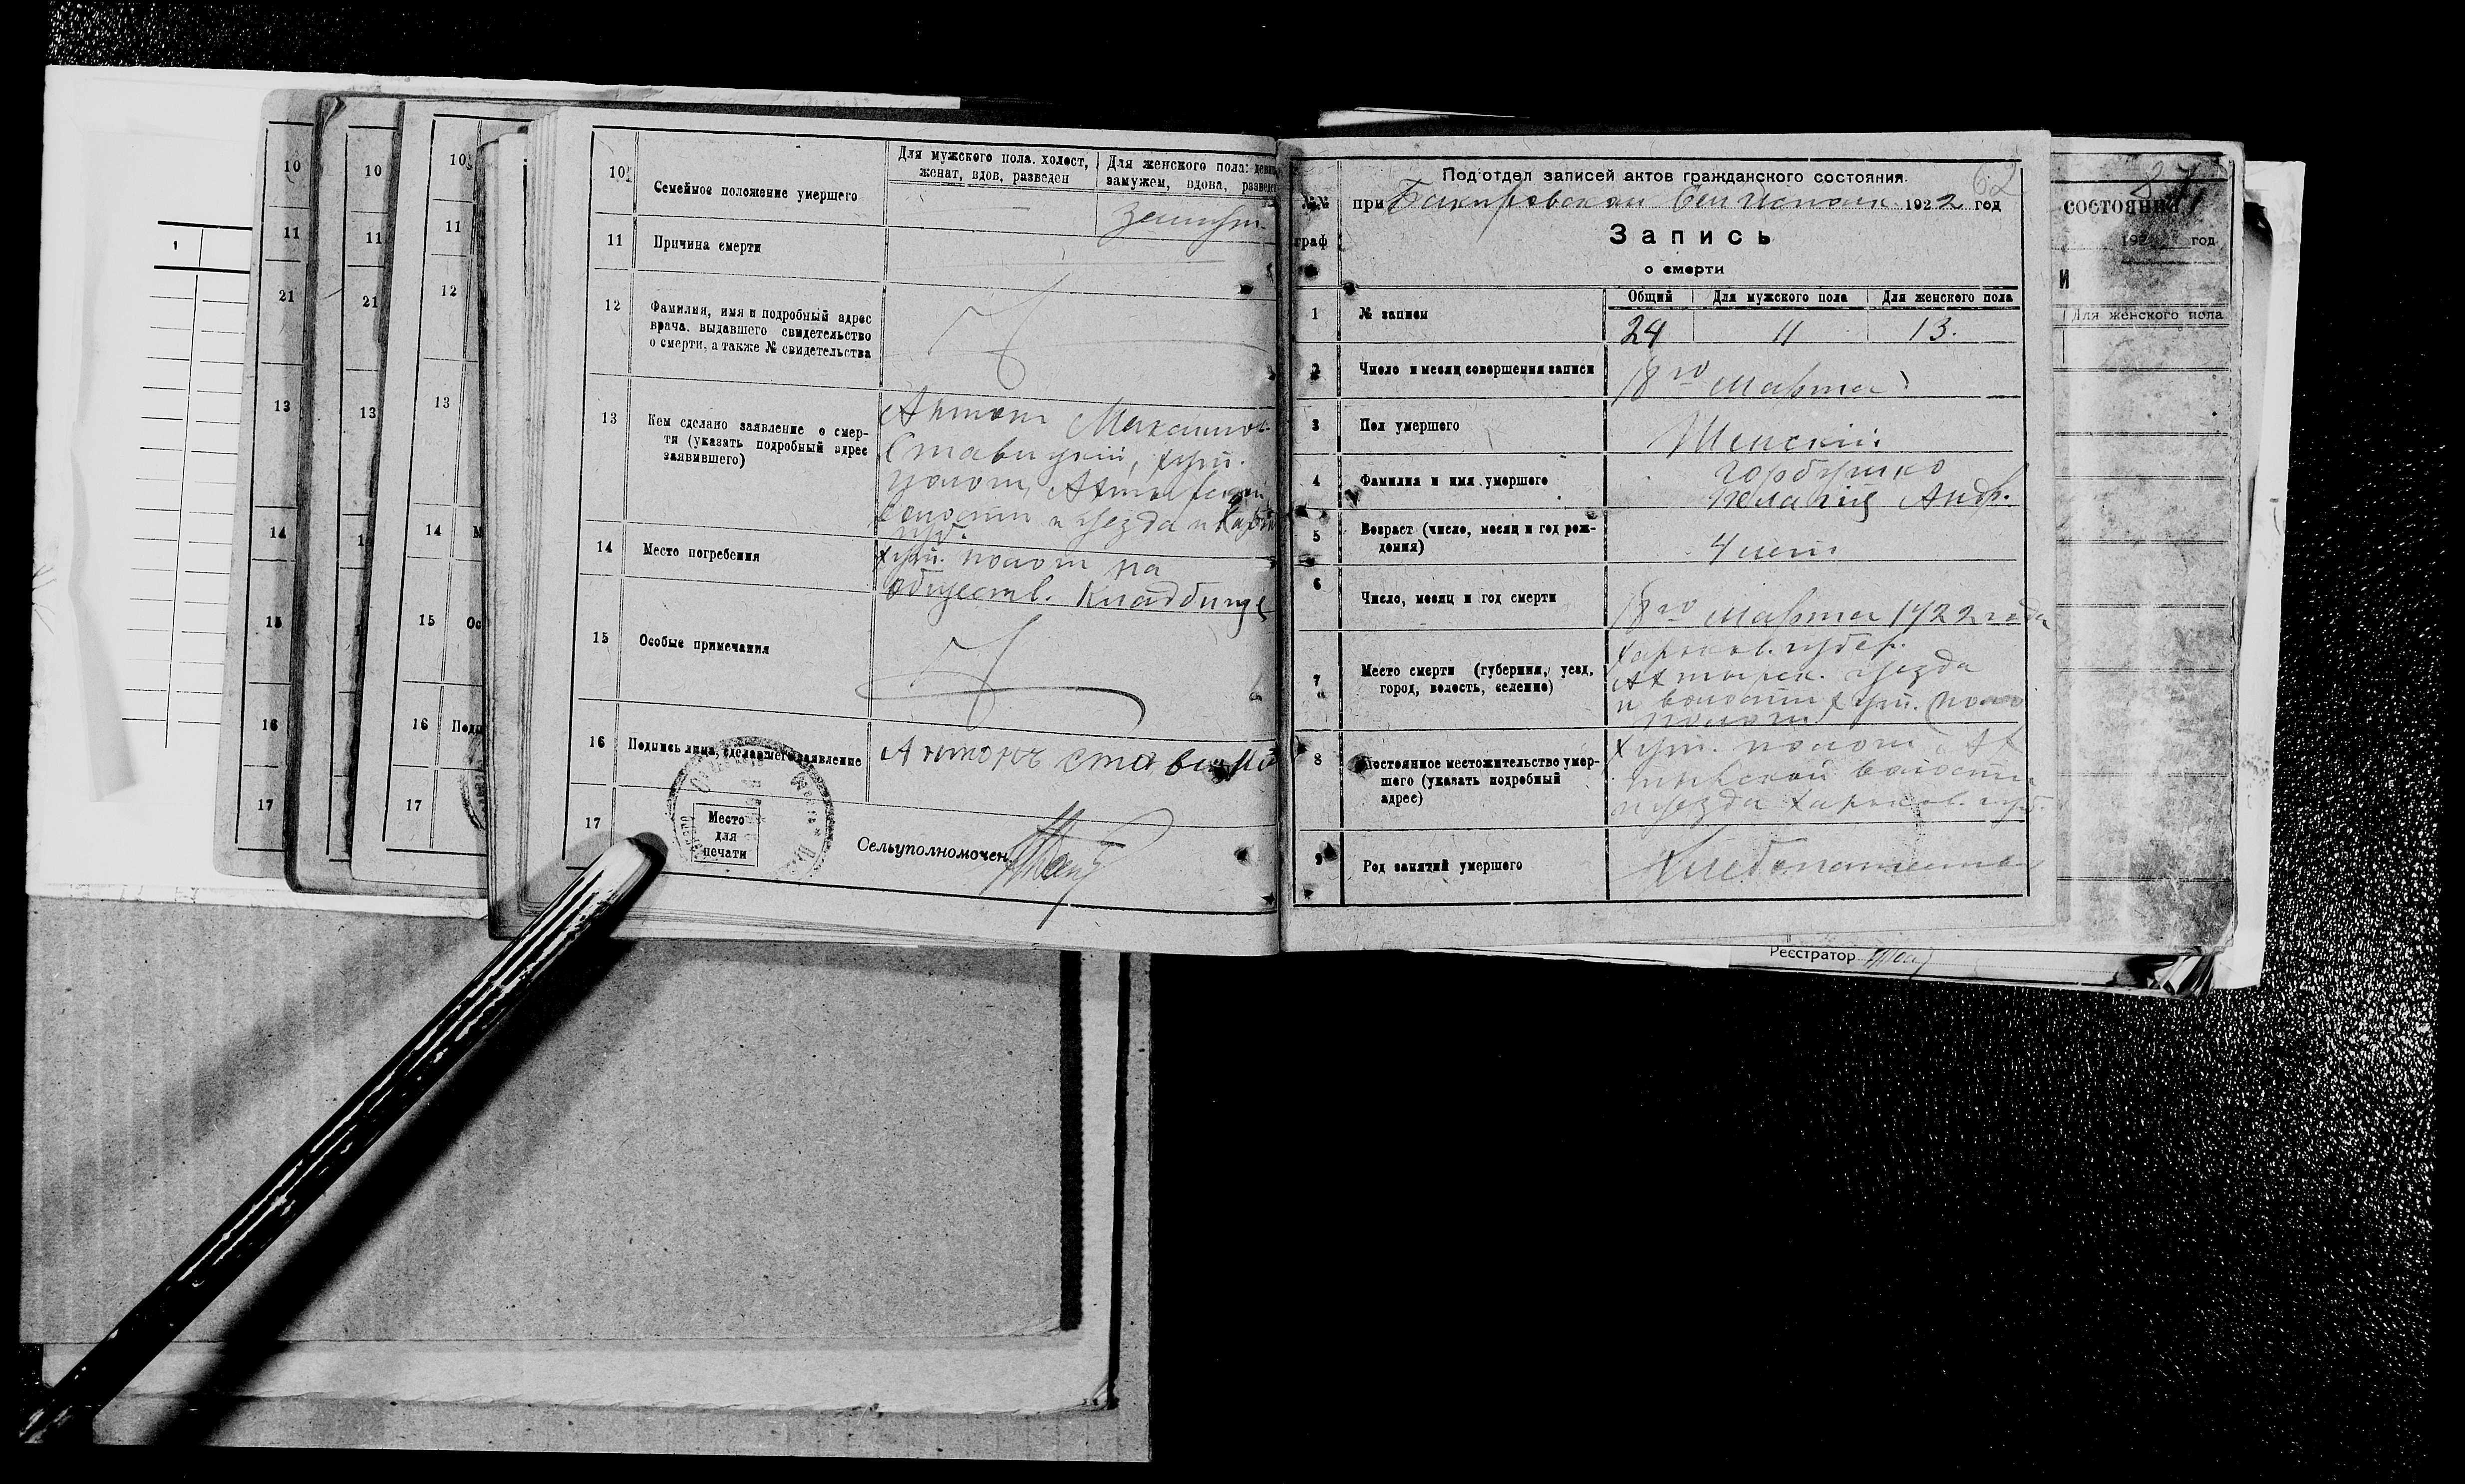 10 Семейное положение умершего
Для мужского пола. холост,
женат, вдов, разведен
Для женского пола:
замужем, вдова,
замуж.
11 Причина смерти
12 Фамилия, имя и подробный адрес
врача, выдавшего свидетельство
о смерти, а также № свидетельства
13 Кем сделано заявление о смер-
ти (указать подробный адрес
заявившего)
Антон Максимов.
Ставицкий, хут.
волости и уезда и
губ.
14 Место погребения
хут. на
обществ. кладбище
15 Особые примечания
16 Подпись лица, сделавшего заявление
Антонъ
17
Место
для
печати
Сельуполномочен.
62
Под'отдел записей актов гражданского состояния.
№№ при 1922 год
граф
Запись
о смерти
Общий Для мужского пола Для женского пола
1 № записи 24 11 13.
2 Число и месяц совершения записи 18го марта
3 Пол умершего Женский
4 Фамилия и имя умершего
Горбушко
Пелагия Андр.
5 Возраст (число, месяц и год рож-
дения)
4 лет
6 Число, месяц и год смерти 18го марта 1922 года
7 Место смерти (губерния, уезд,
город, волость, селение)
Харьков. губер.
Ахтырск. уезда
и волости хут.
8 Постоянное местожительство умер-
шего (указать подробный
адрес)
хут. Ах
тырской волости
и уезда Харьков. губ.
9 Род занятий умершего Хлебопашество
состояния
192 год
И
Для женского пола
Реєстратор
10
11
21
13
14
15
16
17
10
11
21
13
10
11
12
13
14
15 Ос
16 Подп
17
1